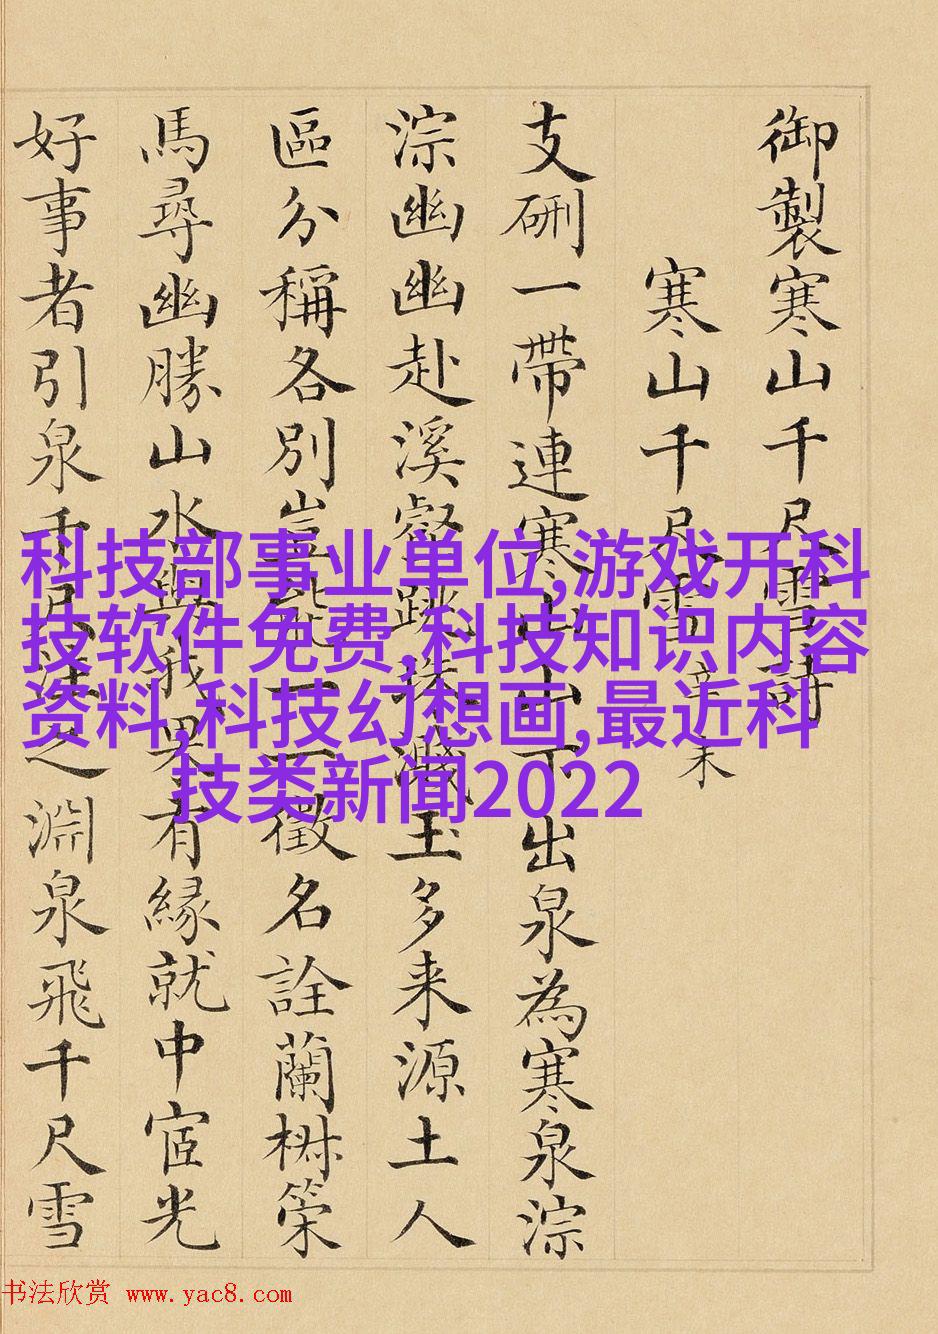 御製寒山千尺雪詩
寒山千尺雪辛未
支硎一帶連寒山山下出泉為寒泉淙
淙幽幽赴溪跳珠濺玉多来源土人
區分稱各別豈能一一徵名詮蘭策
馬尋幽勝山水與我果有緣就中宦光
好事者引泉千尺注之淵泉飛千尺雪
科技部事业单位,游戏开科
技软件免费,科技知识内容
资料,科技幻想画,最近科
技类新闻2022
书法欣赏 www.yac8.com